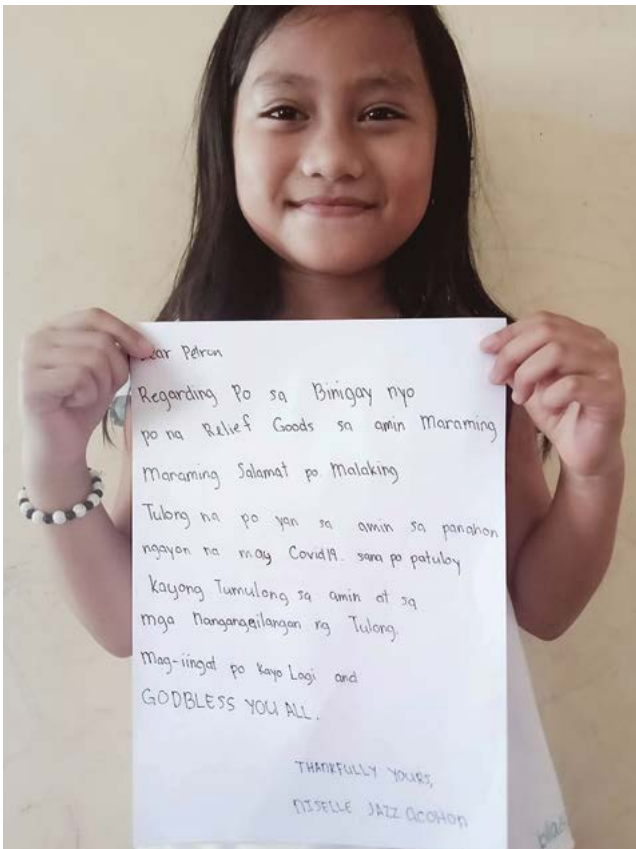 Dear Petron
Regarding Po sa Binigay nyo
po na Relief Goods sa amin Maraming
Maraming Salamat po Malaking
Tulong na po yan sa amin sa panahon
ngayon na may Covid19. sana po patuloy
Kayong Tumulong sa amin at sa
mga Nangangailangan ng Tulong.
Mag-iingat po Kayo Lagi and
GODBLESS YOU ALL.
THANKFULLY YOURS,
NISELLE JAZZ ACOHON